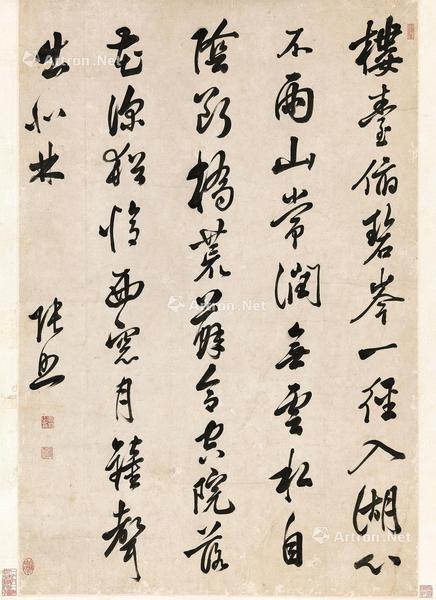 樓臺俯碧岑一徑入湖心
不雨山常潤無雲松自
陰斷橋荒蘚合空院落
花深猶憶西窗月鐘聲
出北林
張照
Artron.Net
Artron.Net
Artron.Net
Artron.Net
Artron.Net